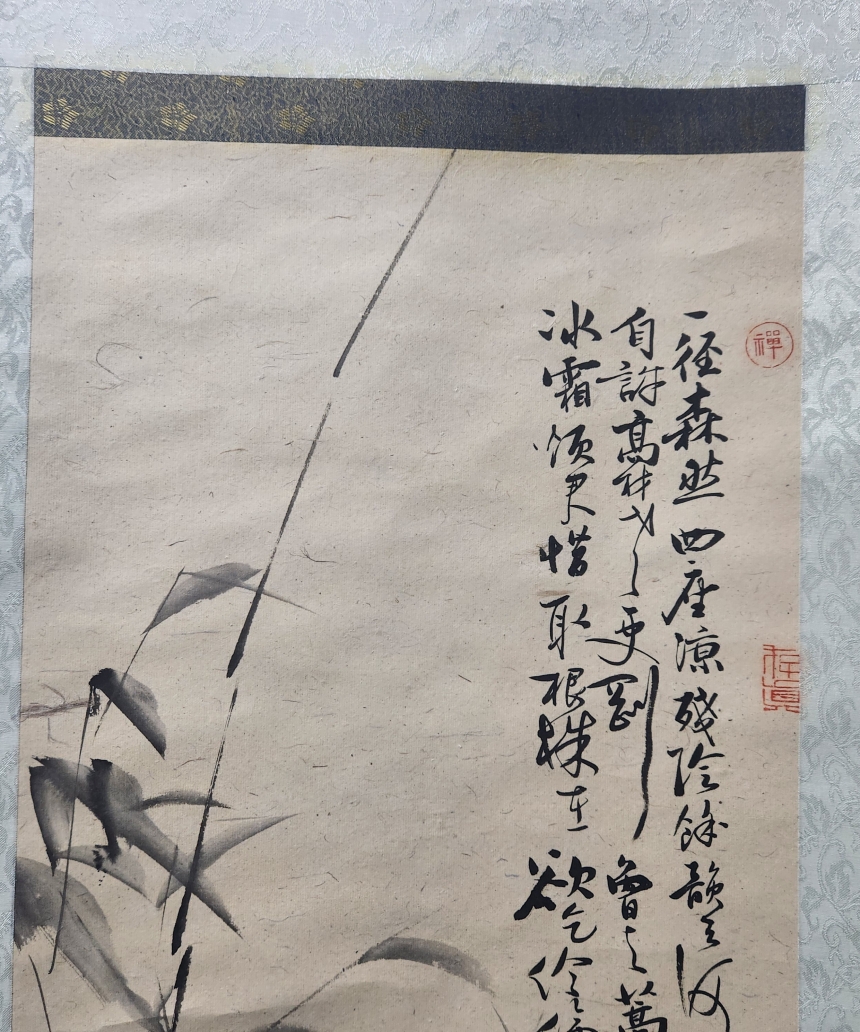 禪
一径森然四座涼殘陰餘韻去何
自許高材老更剛曾与蒿
冰霜煩君惜取根株在欲乞伶